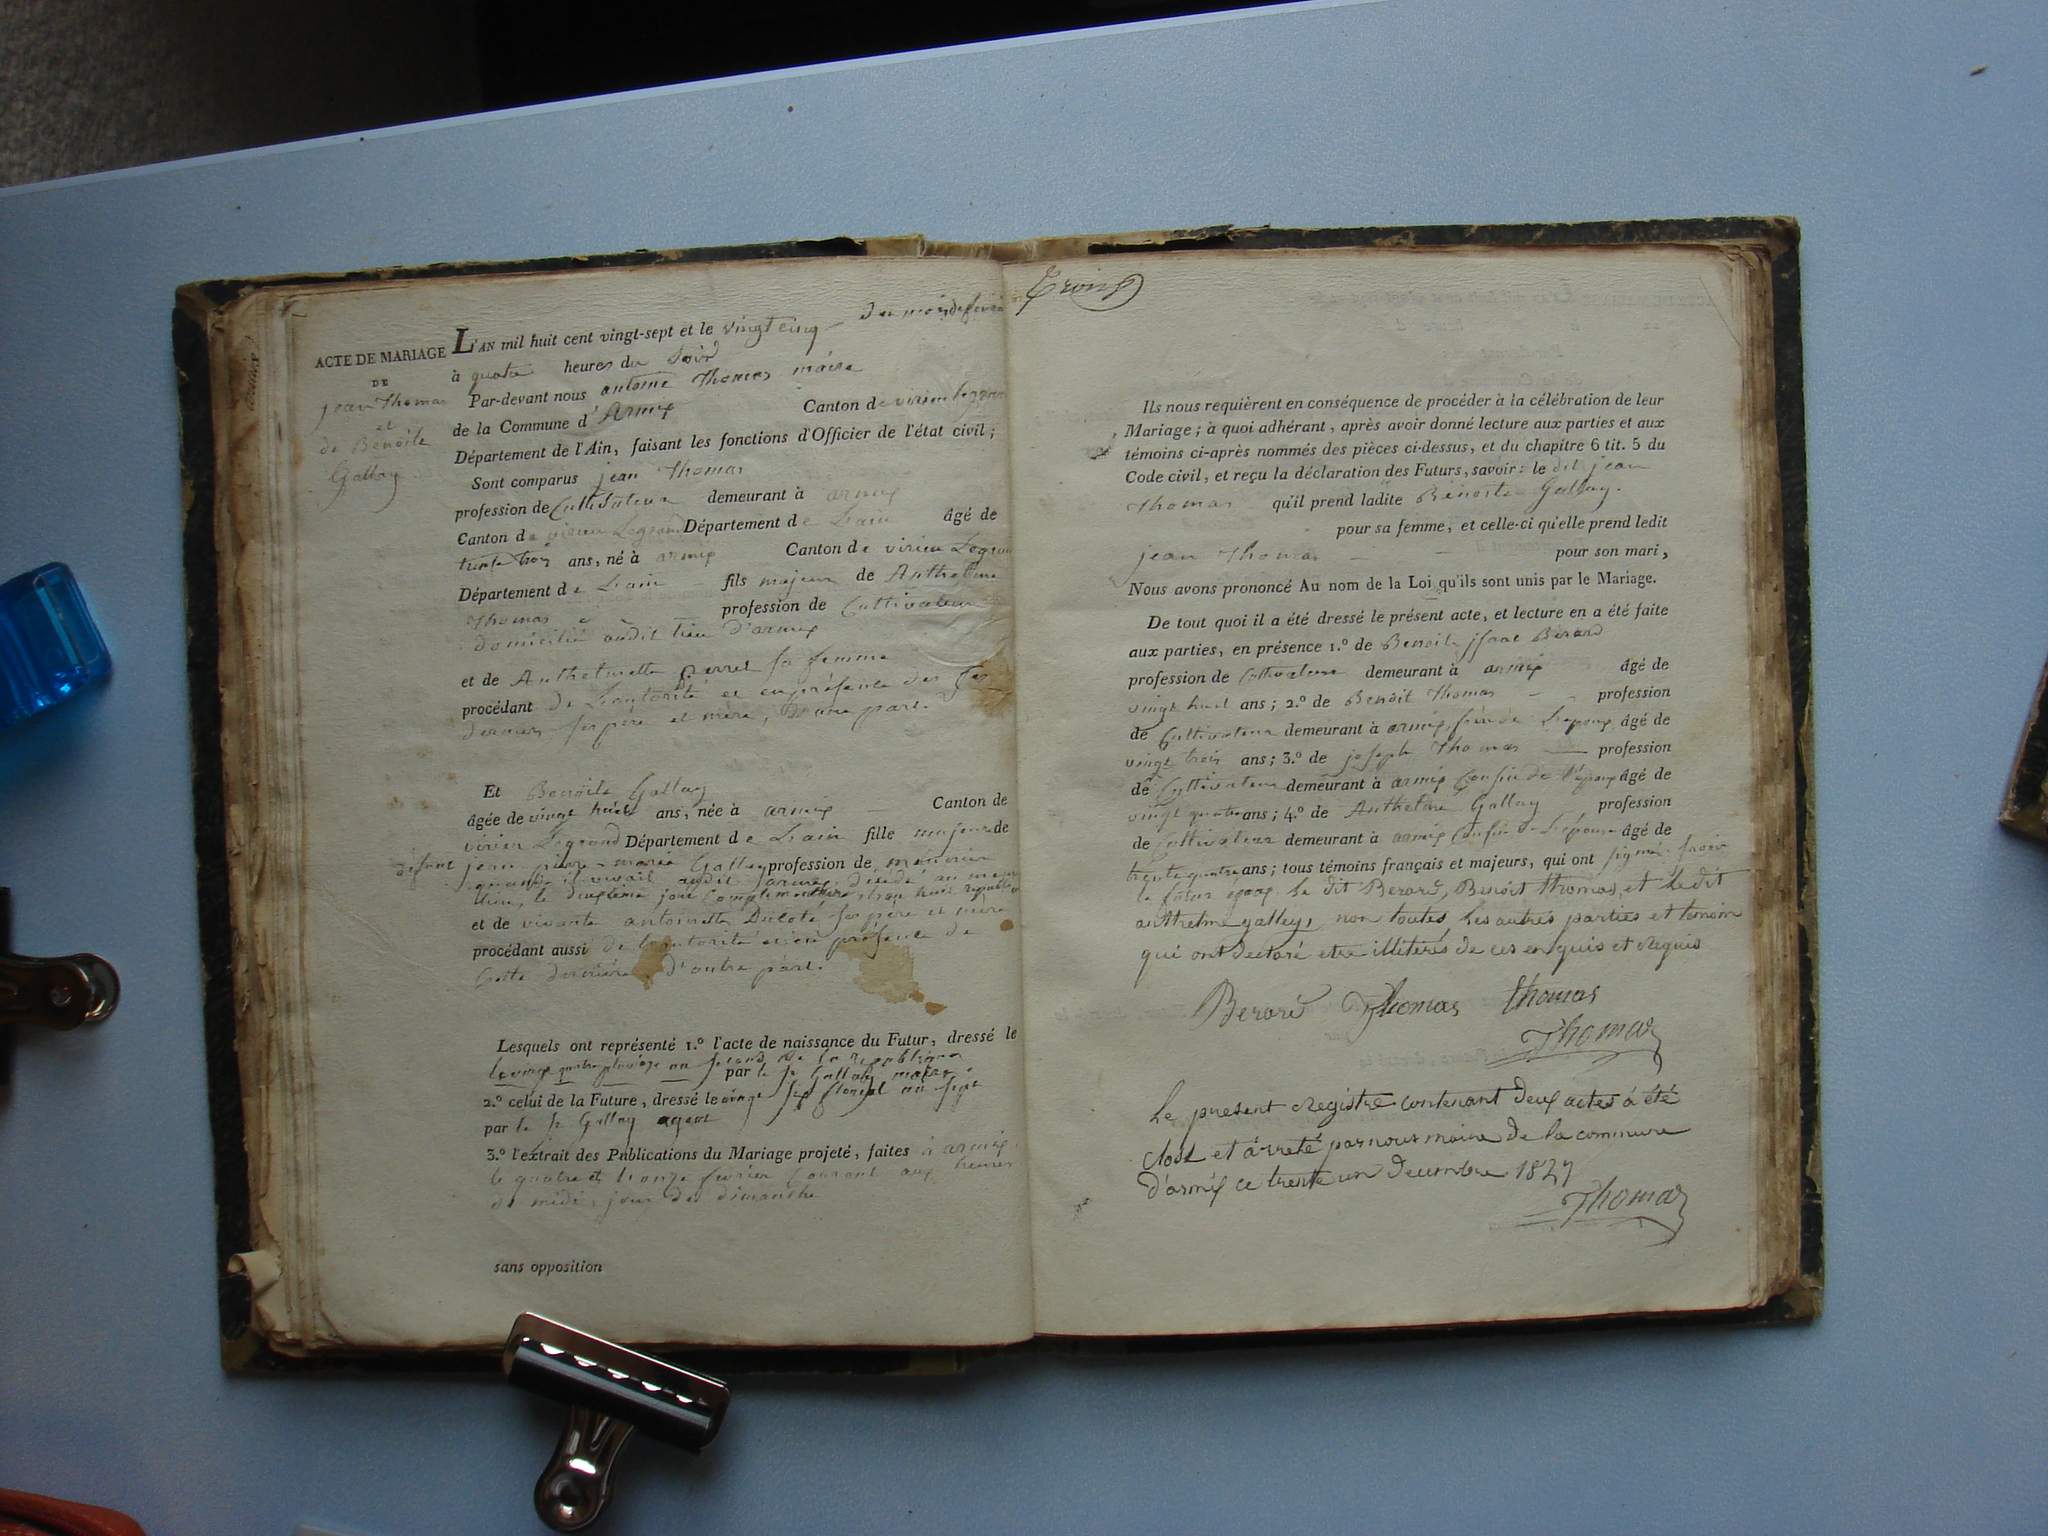 du mois de fevrier
ACTE DE MARIAGE
DE
jean Thomas
et
de Benoite
Gallay
L'AN mil huit cent vingt-sept et le vingt cinq
à quatre heures du Soir
Par-devant nous antoine Thomas maire
de la Commune d'Armix Canton de virieu legrand
Département de l'Ain, faisant les fonctions d'Officier de l'état civil;
Sont comparus jean Thomas
profession de Cultivateur demeurant à armix
Canton de virieu Legrand Département de L'ain âgé de
trente trois ans, né à armix Canton de virieu Legrand
Département de L'ain fils majeur de Anthelme
Thomas profession de Cultivateur
domicilié audit lieu d'armix
et de Anthelmette perret sa femme
procédant de L'autorité et en présence des ses
derniers ses père et mère, D'une part.
Et Benoite Gallay
âgée de vingt huit ans, née à armix Canton de
virieu Legrand Département de L'ain fille majeure de
défunt jean pierre marie Gallay profession de
quand il vivait audit armix décédé au meme
lieu, le deuxième jour complementaire an huit
et de vivante antoinette Ducloté ses père et mère
procédant aussi de l'autorité et en présence de
Cette dernière, d'autre part.
Lesquels ont représenté 1.º l'acte de naissance du Futur, dressé le
le vingt quatre pluviose an second de la republique
par le sr Gallay maire
2.º celui de la Future, dressé le vingt sept floreal an sept
par le sr Gallay agent
3.º l'extrait des Publications du Mariage projeté, faites à armix
le quatre et L'onze fevrier Courant aux heures
de midi, jours de dimanche
sans opposition
Trois
Ils nous requièrent en conséquence de procéder à la célébration de leur
Mariage; à quoi adhérant, après avoir donné lecture aux parties et aux
témoins ci-après nommés des pièces ci-dessus, et du chapitre 6 tit. 5 du
Code civil, et reçu la déclaration des Futurs, savoir: le dit jean
Thomas qu'il prend ladite Bénoite Gallay.
pour sa femme, et celle-ci qu'elle prend ledit
jean Thomas pour son mari,
Nous avons prononcé Au nom de la Loi qu'ils sont unis par le Mariage.
De tout quoi il a été dressé le présent acte, et lecture en a été faite
aux parties, en présence 1.º de Benoit jsaac Bérard
profession de Cultivateur demeurant à armix âgé de
vingt huit ans; 2.º de Benoit Thomas profession
de Cultivateur demeurant à armix, frère de L'epoux âgé de
vingt trois ans; 3.º de joseph Thomas profession
de Cultivateur demeurant à armix Cousin de l'époux âgé de
vingt quatre ans; 4.º de Anthelme Gallay profession
de Cultivateur demeurant à armix Cousin de L'épouse âgé de
trente quatre ans; tous témoins français et majeurs, qui ont signé, savoir
le futur époux le dit Berard, Benoit thomas, et le dit
anthelme galley, non toutes les autres parties et temoin
qui ont declaré etre illitérés de ces enquis et requis
Berard Thomas thomas
Thomas
Le present registre contenant deux actes à été
clost et àrreté par nous maire de la commune
d'armix ce trente un decembre 1827
Thomas